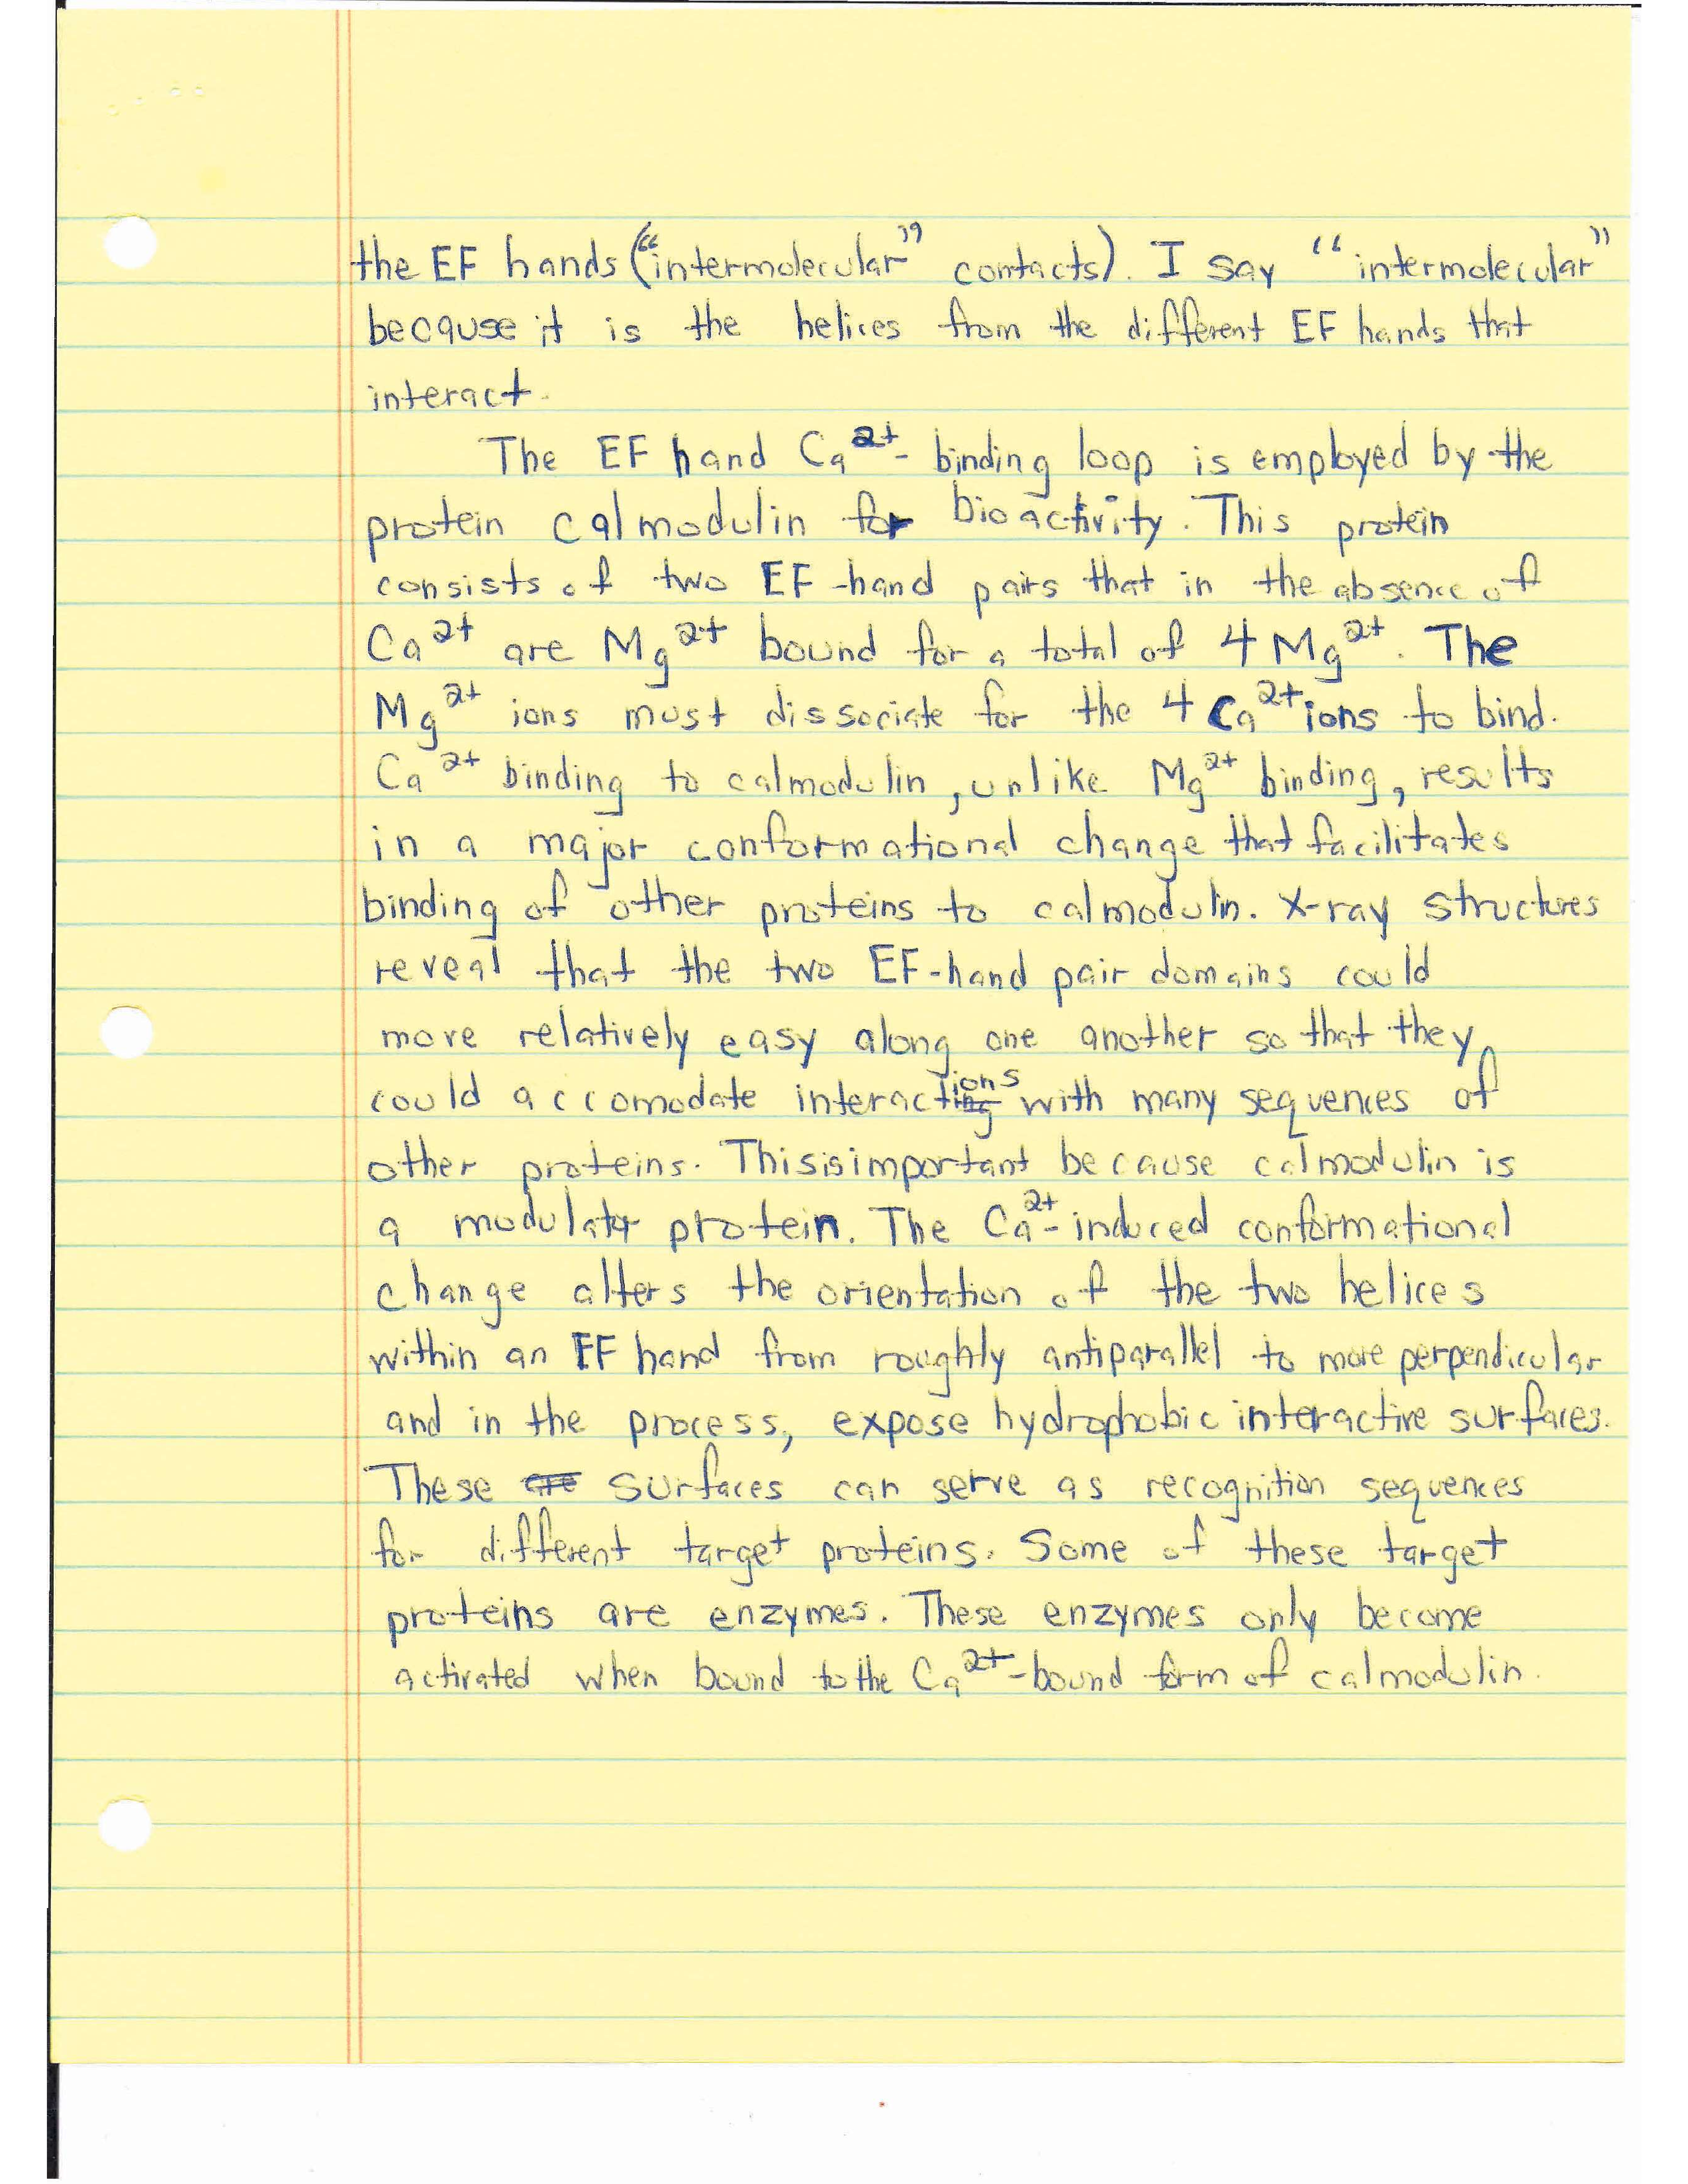 the EF hands ("intermolecular" contacts). I say "intermolecular"
because it is the helices from the different EF hands that
interact.
The EF hand Ca²⁺-binding loop is employed by the
protein calmodulin for bioactivity. This protein
consists of two EF-hand pairs that in the absence of
Ca²⁺ are Mg²⁺ bound for a total of 4 Mg²⁺. The
Mg²⁺ ions must dissociate for the 4 Ca²⁺ ions to bind.
Ca²⁺ binding to calmodulin, unlike Mg²⁺ binding, results
in a major conformational change that facilitates
binding of other proteins to calmodulin. X-ray structures
reveal that the two EF-hand pair domains could
move relatively easy along one another so that they
could accomodate interactions with many sequences of
other proteins. This is important because calmodulin is
a modulator protein. The Ca²⁺-induced conformational
change alters the orientation of the two helices
within an EF hand from roughly antiparallel to more perpendicular
and in the process, expose hydrophobic interactive surfaces.
These surfaces can serve as recognition sequences
for different target proteins. Some of these target
proteins are enzymes. These enzymes only become
activated when bound to the Ca²⁺-bound form of calmodulin.